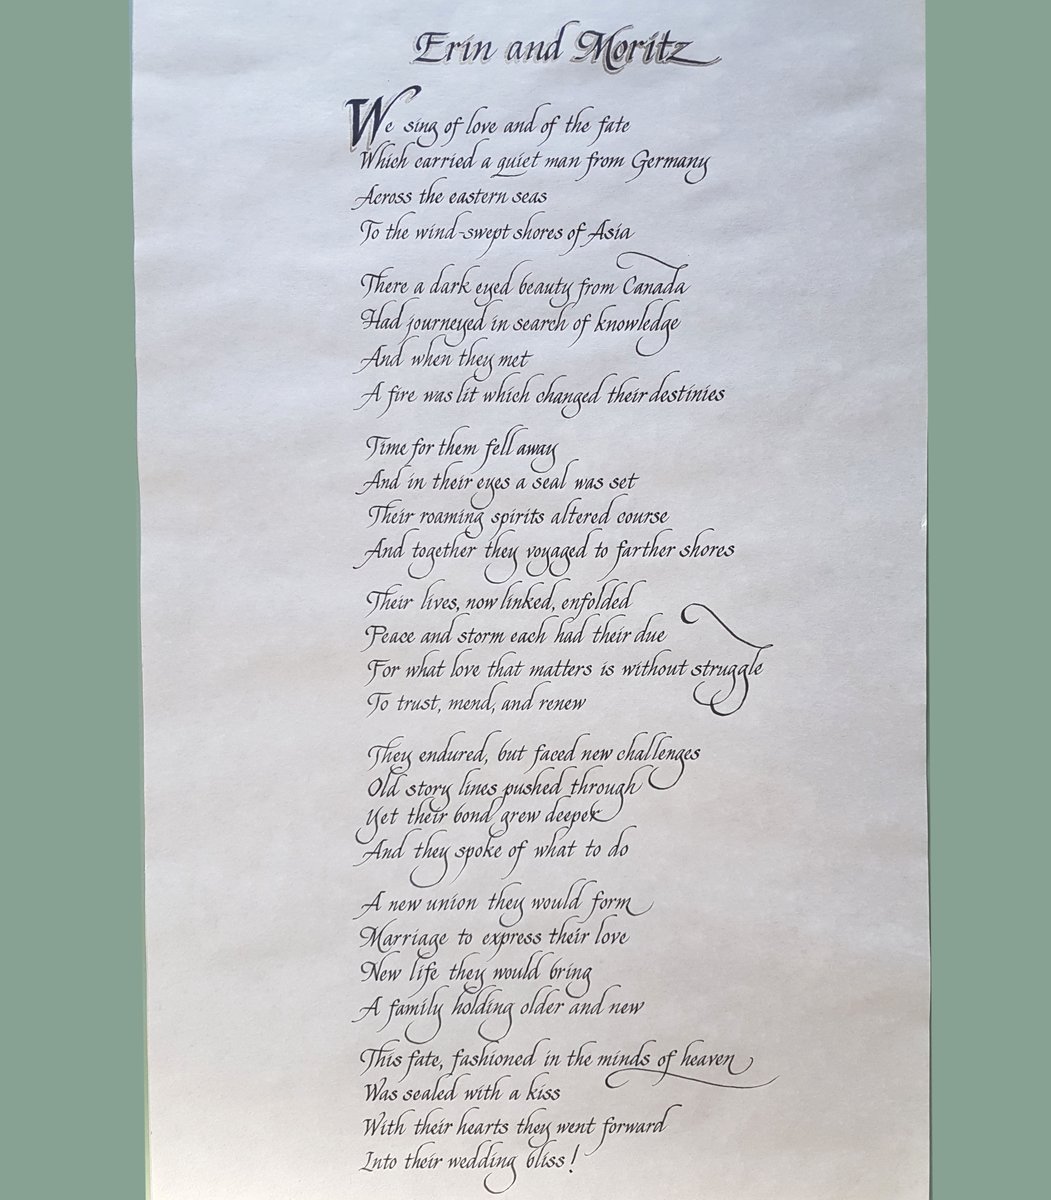 Erin and Moritz
We sing of love and of the fate
Which carried a quiet man from Germany
Across the eastern seas
To the wind-swept shores of Asia
There a dark eyed beauty from Canada
Had journeyed in search of knowledge
And when they met
A fire was lit which changed their destinies
Time for them fell away
And in their eyes a seal was set
Their roaming spirits altered course
And together they voyaged to farther shores
Their lives, now linked, enfolded
Peace and storm each had their due
For what love that matters is without struggle
To trust, mend, and renew
They endured, but faced new challenges
Old story lines pushed through
Yet their bond grew deeper
And they spoke of what to do
A new union they would form
Marriage to express their love
New life they would bring
A family holding older and new
This fate, fashioned in the minds of heaven
Was sealed with a kiss
With their hearts they went forward
Into their wedding bliss!